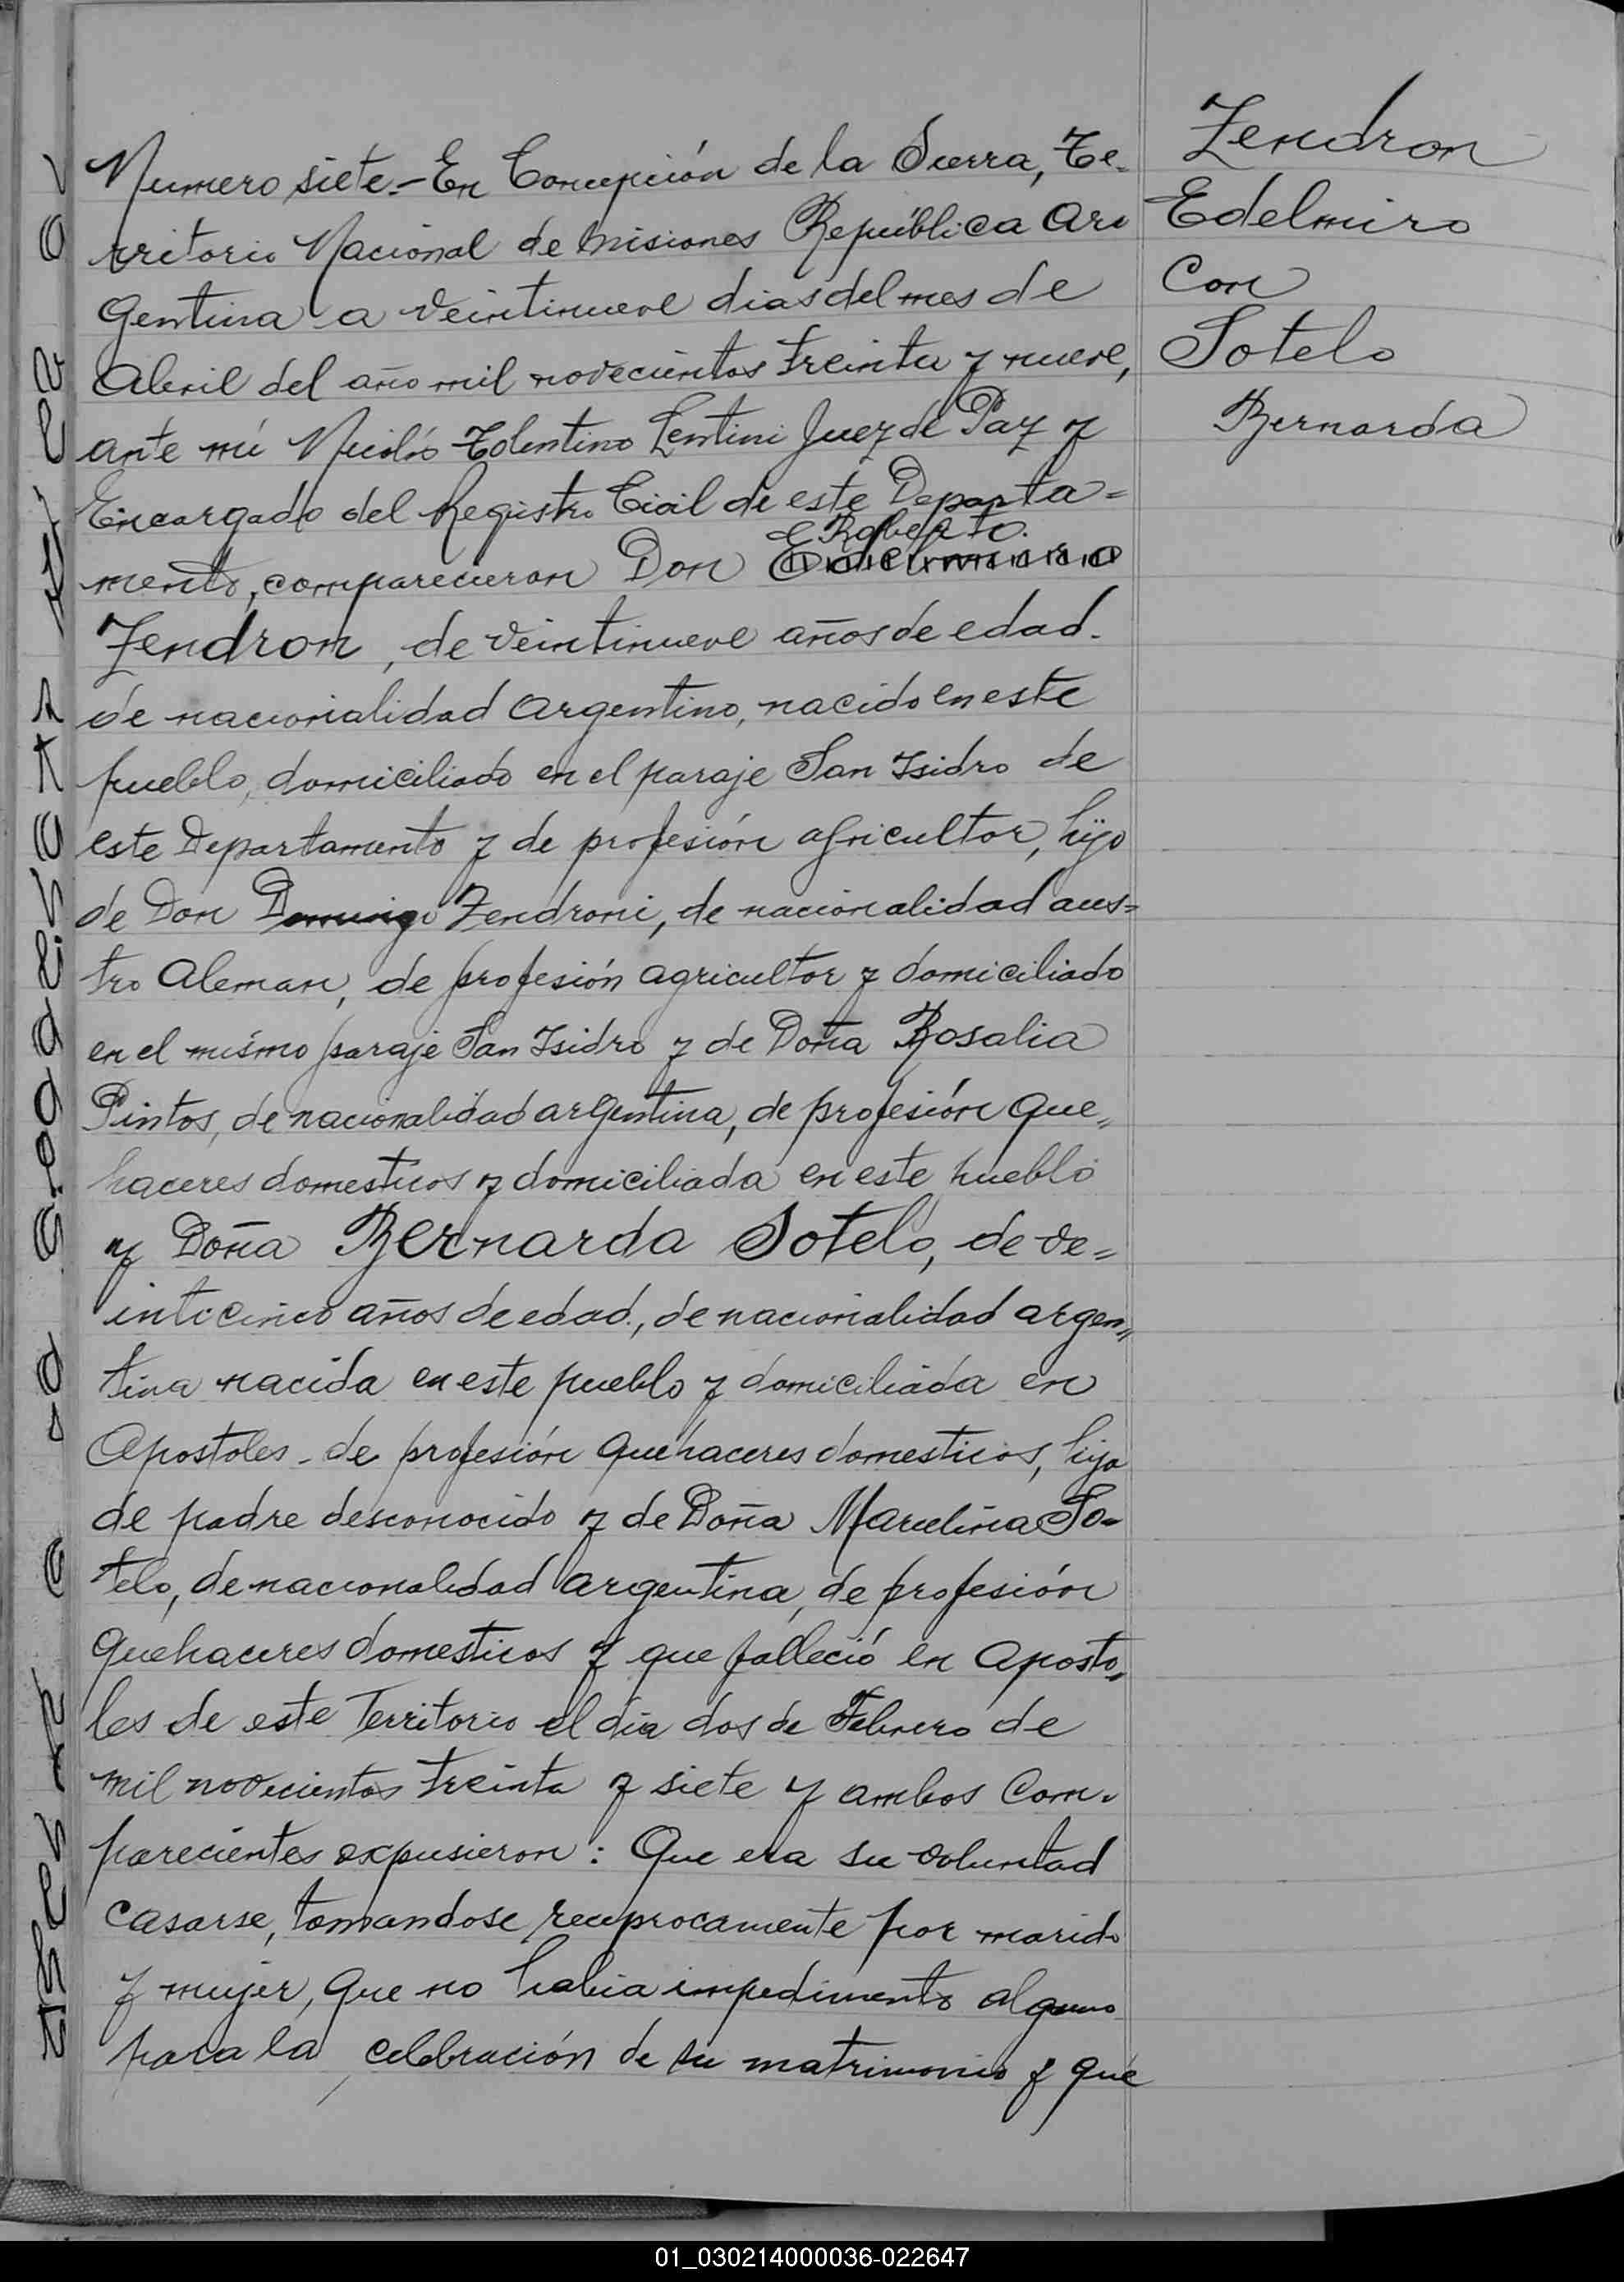 Numero siete.- En Concepción de la Sierra, Te-
rritorio Nacional de Misiones República Ar-
gentina a veintinueve dias del mes de
Abril del año mil novecientos treinta y nueve,
ante mi Nicolás Tolentino Lentini Juez de Paz y
Encargado del Registro Civil de este Departa=
E. Roberto.
mento, comparecieron Don Edelmiro
Zendron, de veintinueve años de edad.
de nacionalidad argentino, nacido en este
pueblo, domiciliado en el paraje San Isidro de
este Departamento y de profesión agricultor, hijo
de Don Domingo Zendroni, de nacionalidad aus=
tro Aleman, de profesión agricultor y domiciliado
en el mismo paraje San Isidro y de Doña Rosalia
Pintos, de nacionalidad argentina, de profesión que=
haceres domesticos y domiciliada en este pueblo
y Doña Bernarda Sotelo, de ve=
inticinco años de edad, de nacionalidad argen=
tina nacida en este pueblo y domiciliada en
Apostoles - de profesión quehaceres domesticos, hija
de padre desconocido y de Doña Marcelina So-
telo, de nacionalidad argentina, de profesión
quehaceres domesticos y que falleció en Aposto=
les de este Territorio el dia dos de Febrero de
mil novecientos treinta y siete y ambos Com-
parecientes expusieron: Que era su voluntad
casarse, tomandose reciprocamente por marido
y mujer, que no habia impedimento alguno
para la celebración de su matrimonio y que
Zendron
Edelmiro
Con
Sotelo
Bernarda
01_030214000036-022647